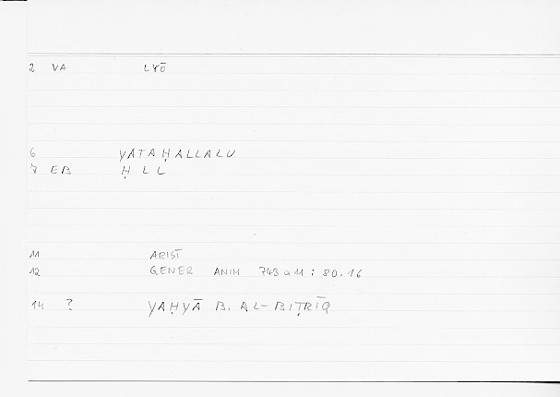 2 VA LYŌ
6 YATAḤALLALU
7 EB Ḥ L L
11 ARIST
12 GENER ANIM 743a11 : 80.16
14 ? YAḤYĀ B. AL-BIṬRĪQ